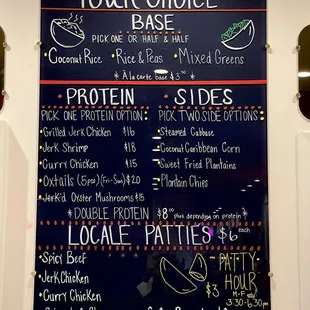 YOUR CHOICE
BASE
PICK ONE OR HALF & HALF
• Coconut Rice • Rice & Peas • Mixed Greens
* À la carte base $3
• PROTEIN
PICK ONE PROTEIN OPTION:
• Grilled Jerk Chicken $16
• Jerk Shrimp $18
• Curry Chicken $15
• Oxtails (5pcs)(Fri-Sun) $20
• Jerk'd Oyster Mushrooms $15
* DOUBLE PROTEIN $8.00 plus depending on protein *
• SIDES
PICK TWO SIDE OPTIONS:
• Steamed Cabbage
• Coconut Caribbean Corn
• Sweet Fried Plantains
• Plantain Chips
LOCALE PATTIES $6 each
• Spicy Beef
• Jerk Chicken
• Curry Chicken
PATTY
HOUR
$3 M-F
3:30-6:30pm